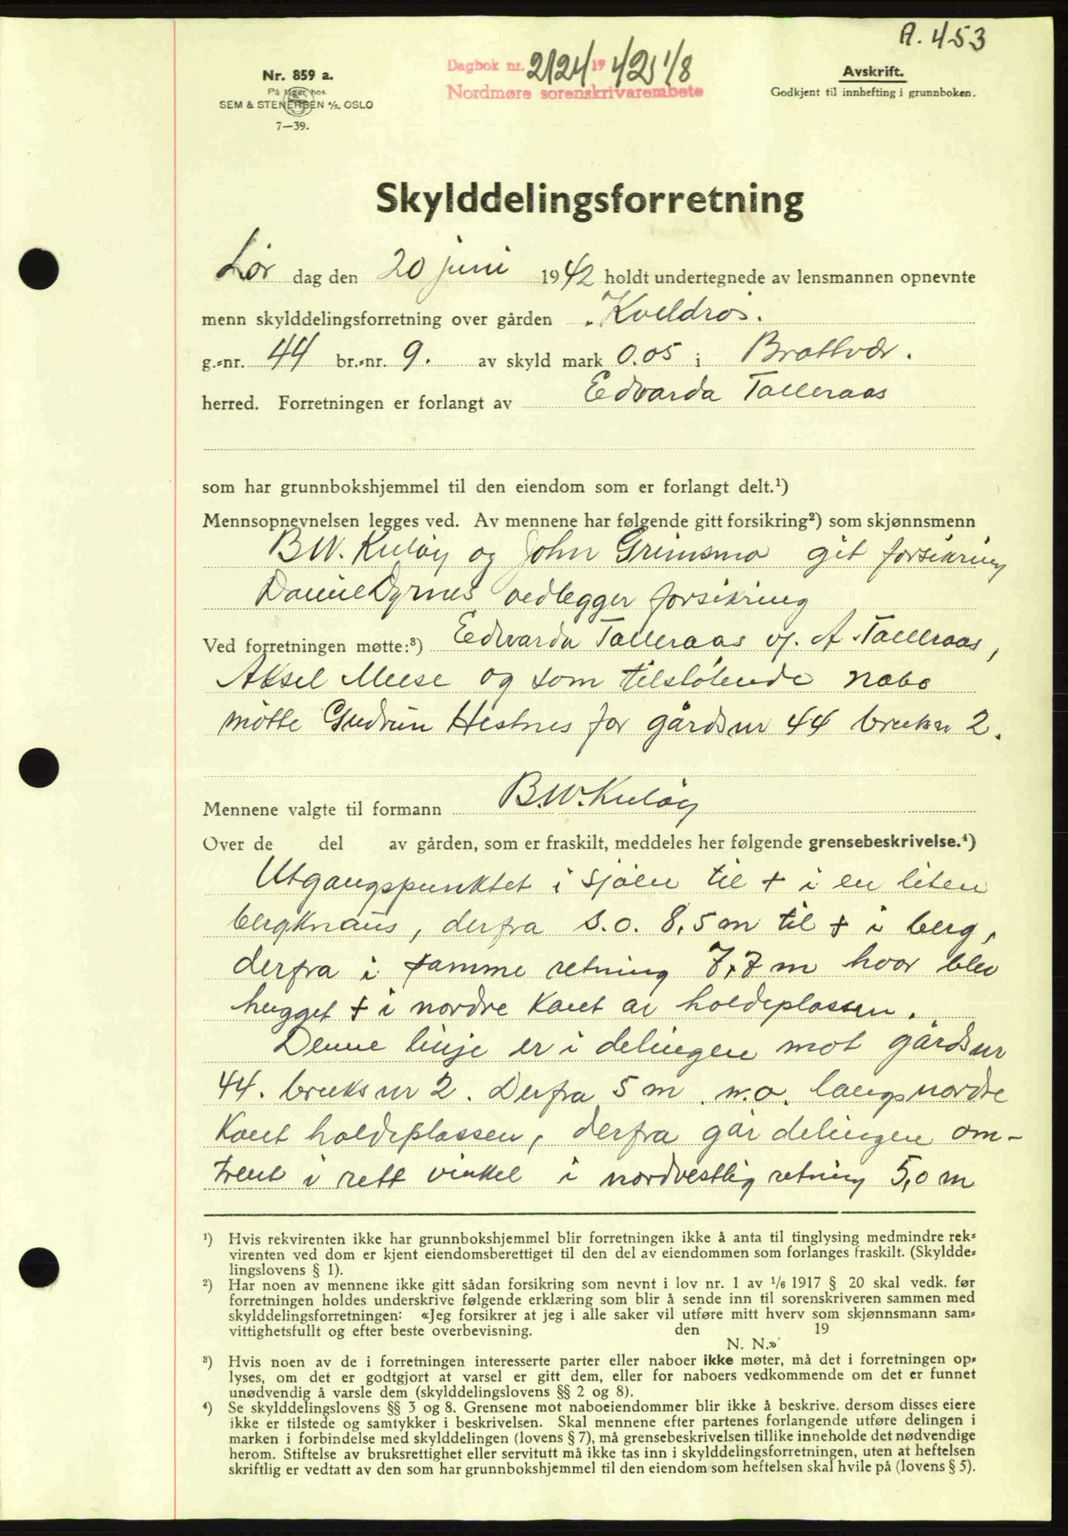 A. 453
Nr. 859 a.
På lager hos
SEM & STENERSEN A/S, OSLO
7—39.
Dagbok nr. 2124 19 42 1/8
Nordmøre sorenskrivarembete
Avskrift.
Godkjent til innhefting i grunnboken.
Skylddelingsforretning
Lør dag den 20 juni 1942 holdt undertegnede av lensmannen opnevnte
menn skylddelingsforretning over gården "Kveldro".
g.-nr. 44 br.-nr. 9. av skyld mark 0.05 i Brattvær.
herred. Forretningen er forlangt av Edvarda Talleraas
som har grunnbokshjemmel til den eiendom som er forlangt delt.¹)
Mennsopnevnelsen legges ved. Av mennene har følgende gitt forsikring²) som skjønnsmenn
B.W. Kuløy og John Grimsmo git forsikring
Daniel Dyrnes vedlegger forsikring
Ved forretningen møtte:³) Edvarda Talleraas v/. A. Talleraas,
Aksel Meese og som tilstøtende nabo
møtte Gudrun Hestnes for gårdsnr 44 bruksnr 2.
Mennene valgte til formann B.W. Kuløy
Over de del av gården, som er fraskilt, meddeles her følgende grensebeskrivelse.⁴)
Utgangspunktet i sjøen til + i en liten
bergknaus, derfra s.o. 8,5 m til + i berg,
derfra i samme retning 7,7 m hvor blev
hugget + i nordre kant av holdeplassen.
Denne linje er i delingen mot gårdsnr
44. bruksnr 2. Derfra 5 m. n.o. langs nordre
kant holdeplassen, derfra går delingen om-
trent i rett vinkel i nordvestlig retning 5,0 m
¹) Hvis rekvirenten ikke har grunnbokshjemmel blir forretningen ikke å anta til tinglysing medmindre rek-
virenten ved dom er kjent eiendomsberettiget til den del av eiendommen som forlanges fraskilt. (Skyldde-
lingslovens § 1).
²) Har noen av mennene ikke gitt sådan forsikring som nevnt i lov nr. 1 av 1/6 1917 § 20 skal vedk. før
forretningen holdes underskrive følgende erklæring som blir å sende inn til sorenskriveren sammen med
skylddelingsforretningen: «Jeg forsikrer at jeg i alle saker vil utføre mitt hverv som skjønnsmann sam-
vittighetsfullt og efter beste overbevisning. den 19
N. N.»
³) Hvis noen av de i forretningen interesserte parter eller naboer ikke møter, må det i forretningen op-
lyses, om det er godtgjort at varsel er gitt dem, eller for naboers vedkommende om det er funnet
unødvendig å varsle dem (skylddelingslovens §§ 2 og 8).
⁴) Se skylddelingslovens §§ 3 og 8. Grensene mot naboeiendommer blir ikke å beskrive, dersom disses eiere
ikke er tilstede og samtykker i beskrivelsen. Skal mennene efter partenes forlangende utføre delingen i
marken i forbindelse med skylddelingen (lovens § 7), må grensebeskrivelsen tillike inneholde det nødvendige
herom. Stiftelse av bruksrettighet eller servitutt må ikke tas inn i skylddelingsforretningen, uten at heftelsen
skriftlig er vedtatt av den som har grunnbokshjemmel til den eiendom som heftelsen skal hvile på (lovens § 5).